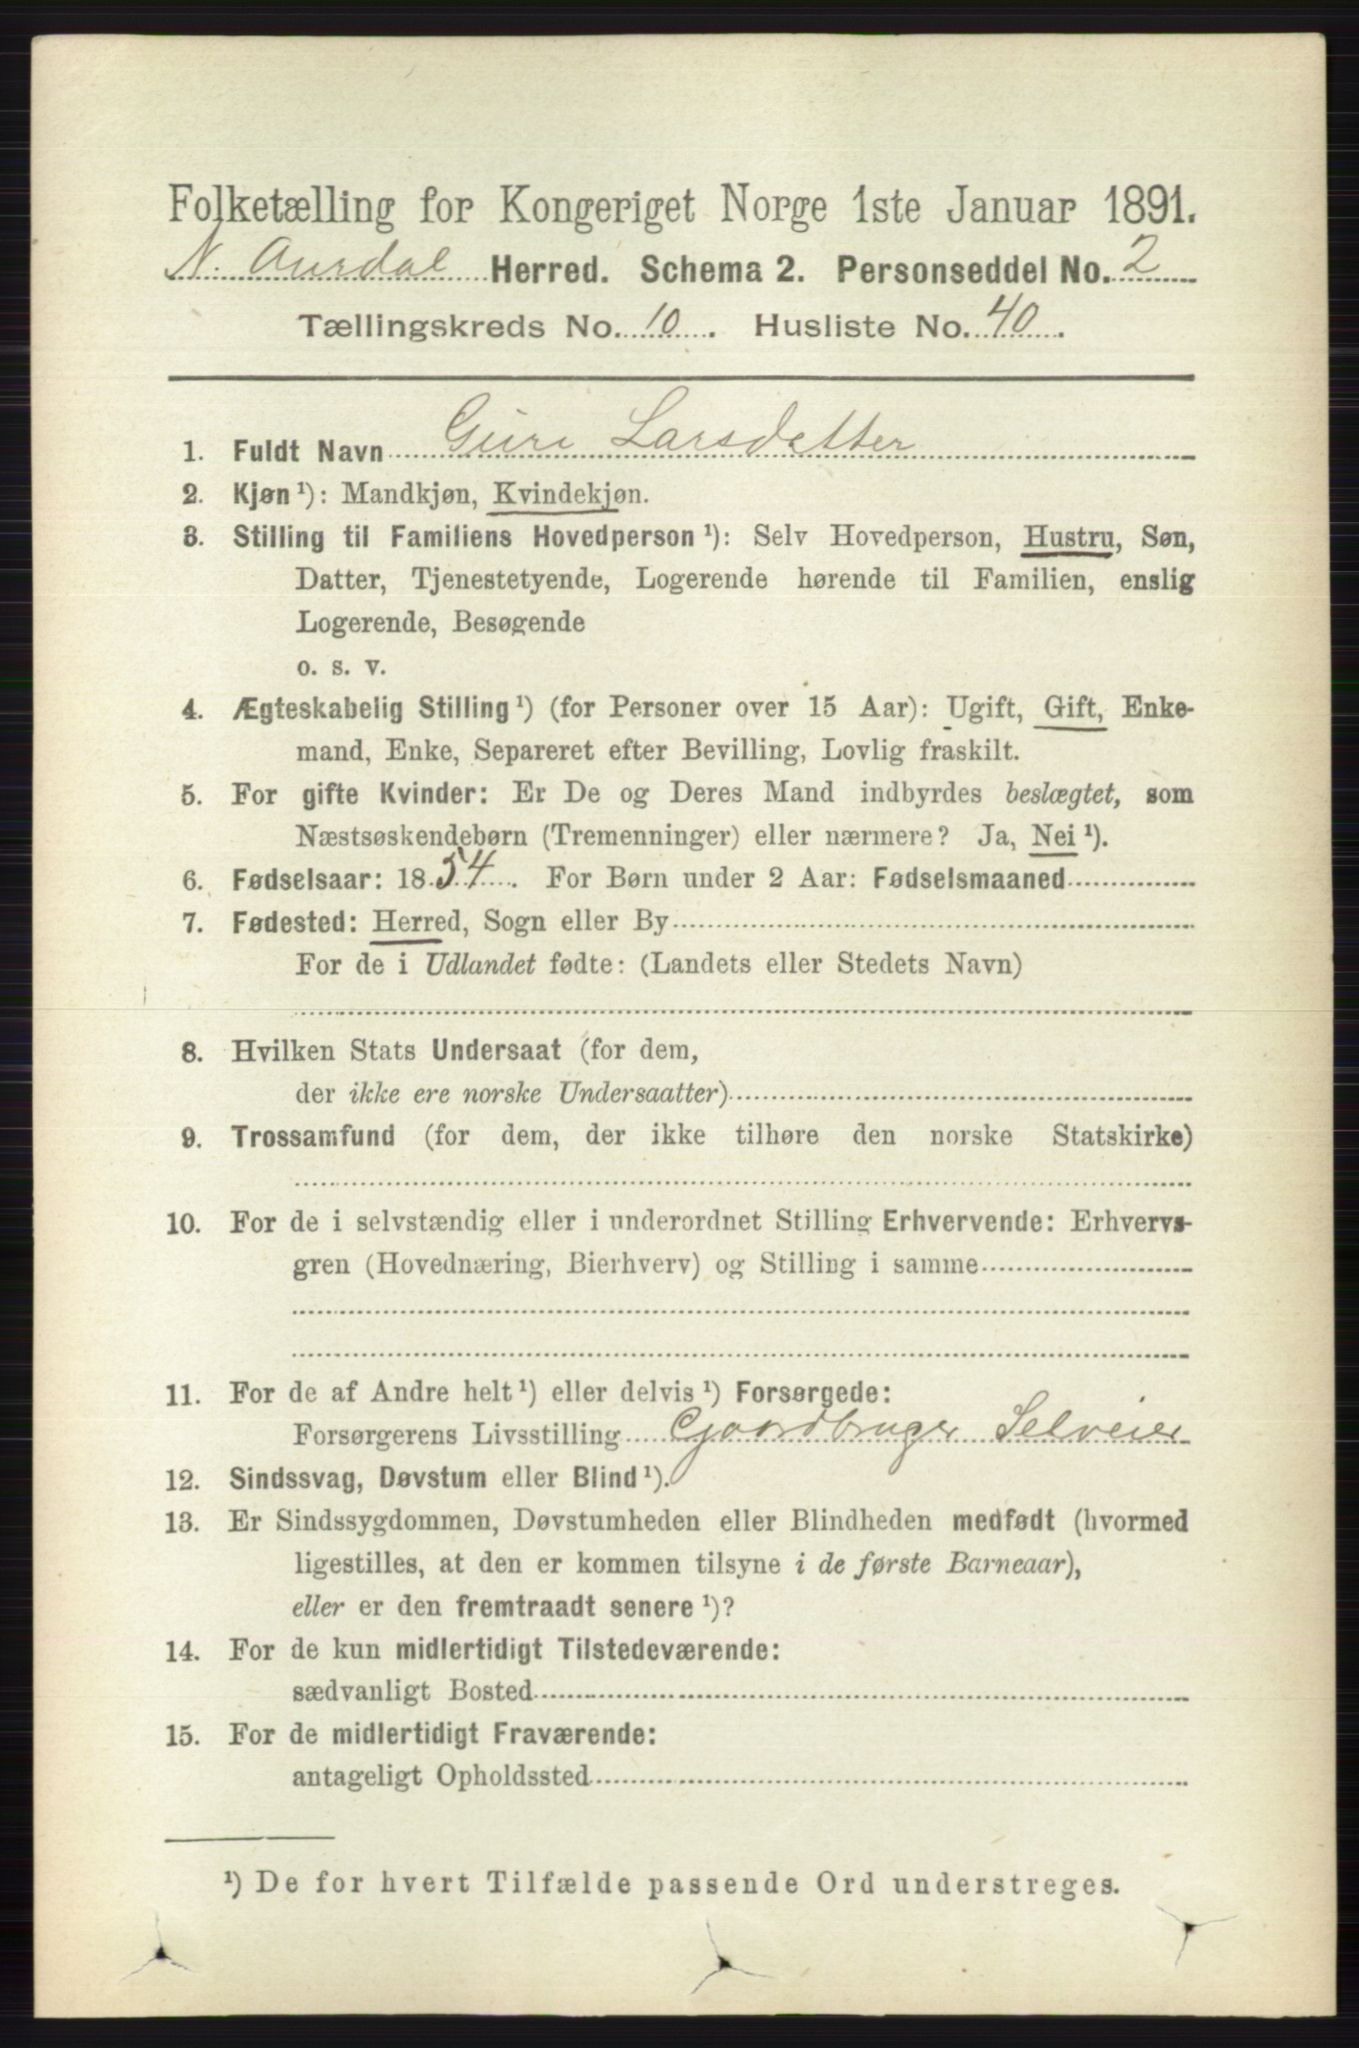 Folketælling for Kongeriget Norge 1ste Januar 1891.
N. Aurdal Herred. Schema 2. Personseddel No. 2
Tællingskreds No. 10. Husliste No. 40.
1. Fuldt Navn Guri Larsdatter
2. Kjøn ¹): Mandkjøn, Kvindekjøn.
3. Stilling til Familiens Hovedperson ¹): Selv Hovedperson, Hustru, Søn,
Datter, Tjenestetyende, Logerende hørende til Familien, enslig
Logerende, Besøgende
o. s. v.
4. Ægteskabelig Stilling ¹) (for Personer over 15 Aar): Ugift, Gift, Enke-
mand, Enke, Separeret efter Bevilling, Lovlig fraskilt.
5. For gifte Kvinder: Er De og Deres Mand indbyrdes beslægtet, som
Næstsøskendebørn (Tremenninger) eller nærmere? Ja, Nei ¹).
6. Fødselsaar: 1854. For Børn under 2 Aar: Fødselsmaaned
7. Fødested: Herred, Sogn eller By
For de i Udlandet fødte: (Landets eller Stedets Navn)
8. Hvilken Stats Undersaat (for dem,
der ikke ere norske Undersaatter)
9. Trossamfund (for dem, der ikke tilhøre den norske Statskirke)
10. For de i selvstændig eller i underordnet Stilling Erhvervende: Erhvervs-
gren (Hovednæring, Bierhverv) og Stilling i samme
11. For de af Andre helt ¹) eller delvis ¹) Forsørgede:
Forsørgerens Livsstilling Gaardbruger Selveier
12. Sindssvag, Døvstum eller Blind ¹).
13. Er Sindssygdommen, Døvstumheden eller Blindheden medfødt (hvormed
ligestilles, at den er kommen tilsyne i de første Barneaar),
eller er den fremtraadt senere ¹)?
14. For de kun midlertidigt Tilstedeværende:
sædvanligt Bosted
15. For de midlertidigt Fraværende:
antageligt Opholdssted
¹) De for hvert Tilfælde passende Ord understreges.